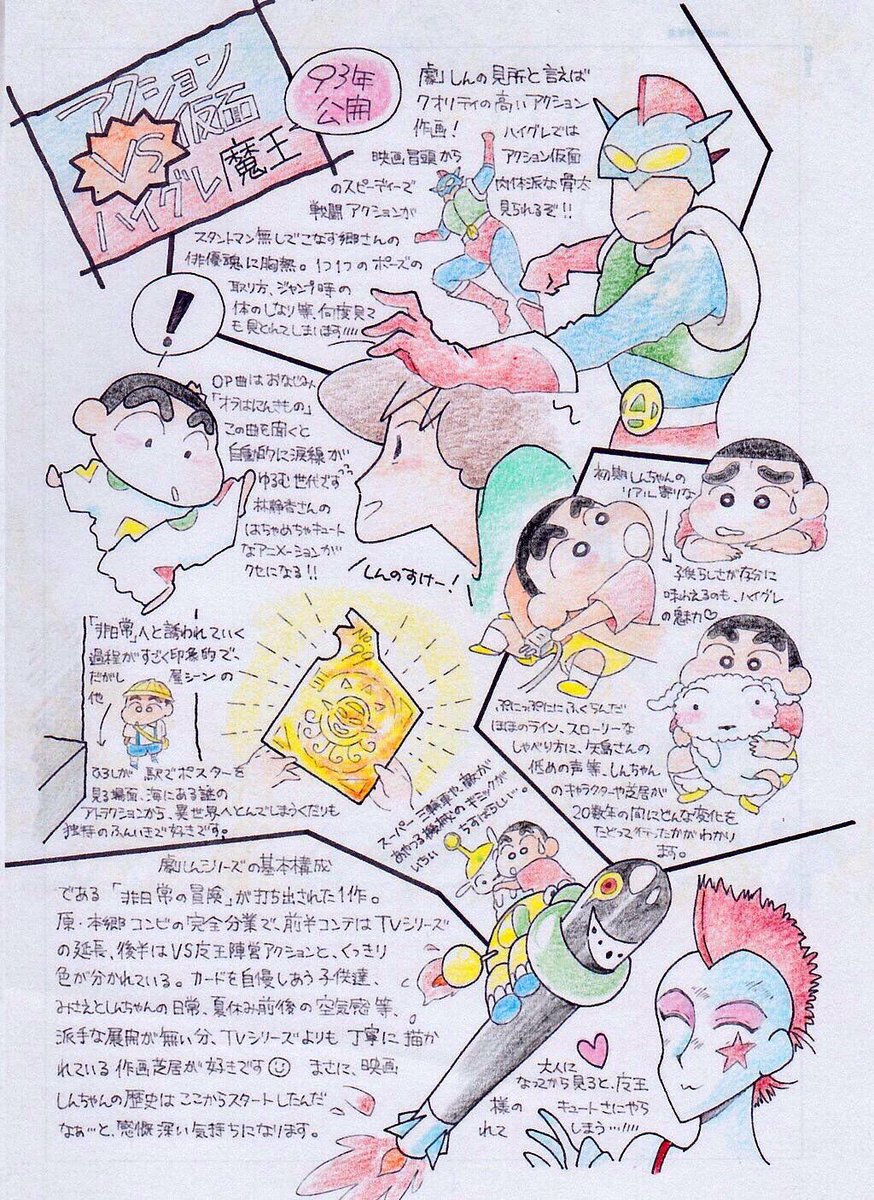 アクション
仮面
VS
ハイグレ魔王
93年
公開
劇しんの見所と言えば
クオリティの高いアクション
作画! ハイグレでは
映画冒頭から アクション仮面
のスピーディーで 肉体派な骨太
戦闘アクションが 見られるぞ!!
スタントマン無しでこなす郷さんの
俳優魂に胸熱。1つ1つのポーズの
取り方、ジャンプ時の
体のしなり等、何度見て
も見とれてしまいます!!!!
!
OP曲はおなじみ
「オラはにんきもの」
この曲を聞くと
自動的に涙線が
ゆるむ世代です
林静香さんの
はちゃめちゃキュート
なアニメーションが
クセになる!!
しんのすけー!
初期しんちゃんの
リアル寄りな
子供らしさが存分に
味わえるのも、ハイグレ
の魅力♡
ぷにっぷににふくらんだ
ほほのライン、スローリーな
しゃべり方に、矢島さんの
低めの声等、しんちゃん
のキャラクターや芝居が
20数年の間にどんな変化を
たどって行ったかがわかり
ます。
「非日常」へと誘われていく
過程がすごく印象的で、
だがし屋シーンの
他
ひろしが駅でポスターを
見る場面、海にある謎の
アトラクションから、異世界へとんでしまうくだりも
独特のふんいきで好きです。
No.99
スーパー三輪車や、敵が
あやつる機械のギミックが
いちいち
すばらしい…。
劇しんシリーズの基本構成
である「非日常の冒険」が打ち出された1作。
原・本郷コンビの完全分業で、前半コンテはTVシリーズ
の延長、後半はVS魔王陣営アクションと、くっきり
色が分かれている。カードを自慢しあう子供達、
みさえとしんちゃんの日常、夏休み前後の空気感等、
派手な展開が無い分、TVシリーズよりも丁寧に描か
れている作画芝居が好きです まさに、映画
しんちゃんの歴史はここからスタートしたんだ
なぁ…と、感慨深い気持ちになります。
大人に
なってから見ると、魔王
様の キュートさにやら
れて しまう…!!!!